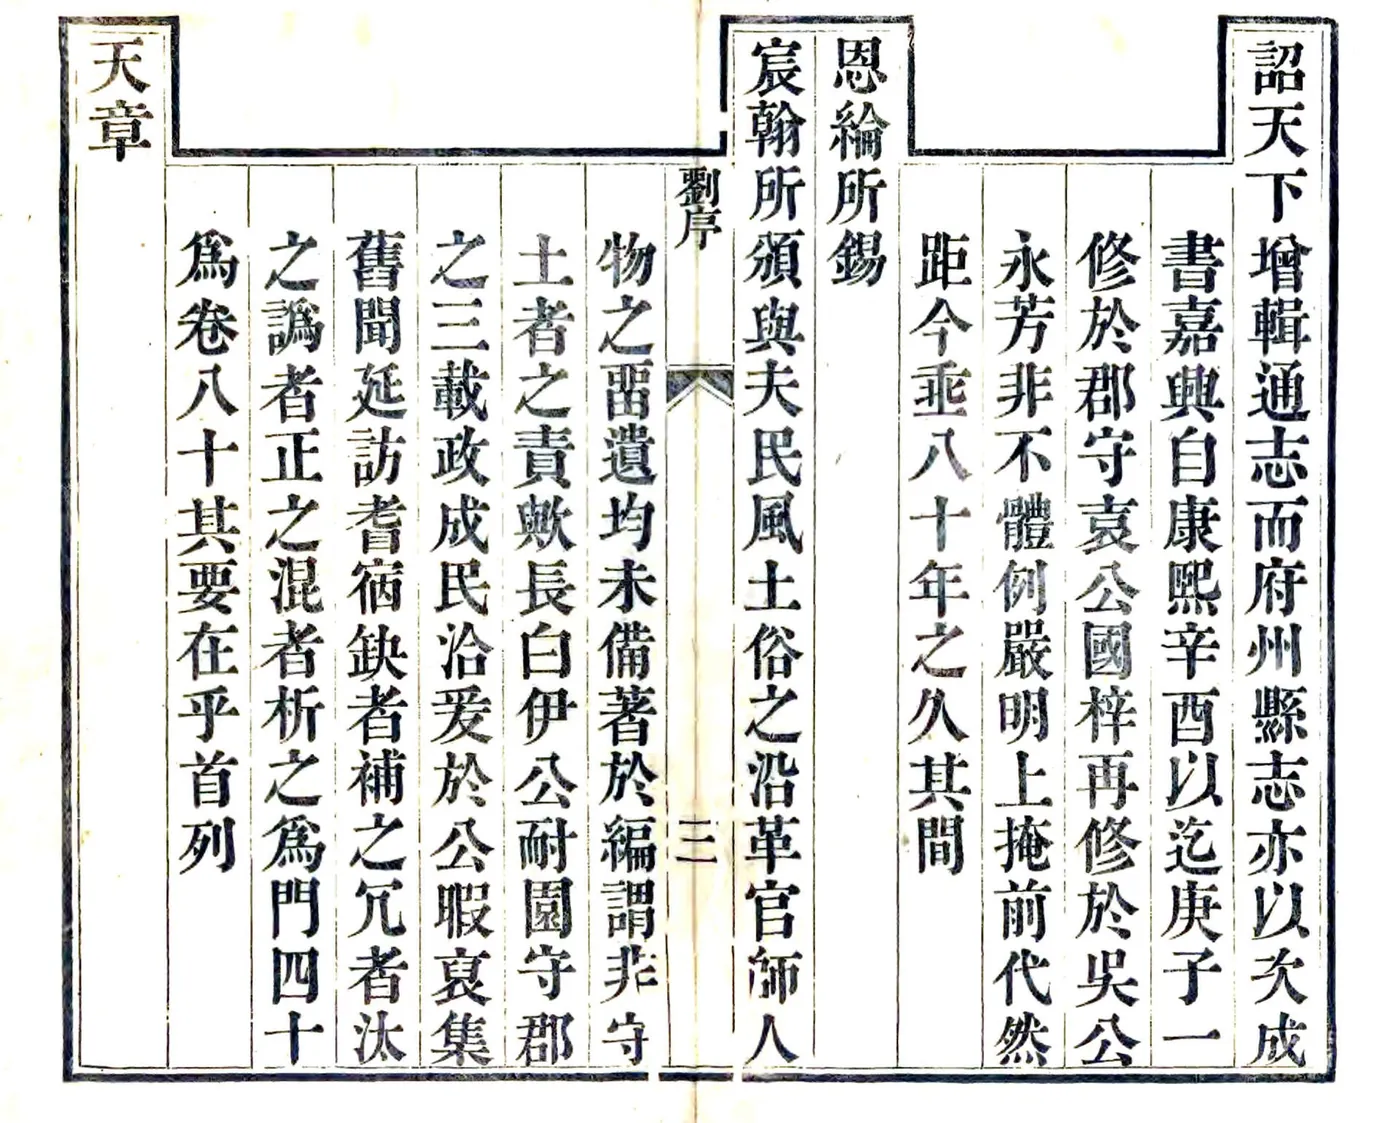 詔天下增輯通志而府州縣志亦以次成
書嘉興自康熙辛酉以迄庚子一
修於郡守袁公國梓再修於吳公
永芳非不體例嚴明上掩前代然
距今垂八十年之久其間
恩綸所錫
宸翰所頒與夫民風土俗之沿革官師人
劉序
三
物之畱遺均未備著於編謂非守
土者之責歟長白伊公耐園守郡
之三載政成民洽爰於公暇裒集
舊聞延訪耆宿缺者補之冗者汰
之譌者正之混者析之爲門四十
爲卷八十其要在乎首列
天章